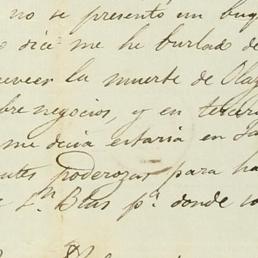 no se presentó un buq
dia me he burlado de
preveer la muerte de Olaz
bre negocios, y en tercer
me decia estaria en
poderozas para ha
Sn. Blas pa. donde